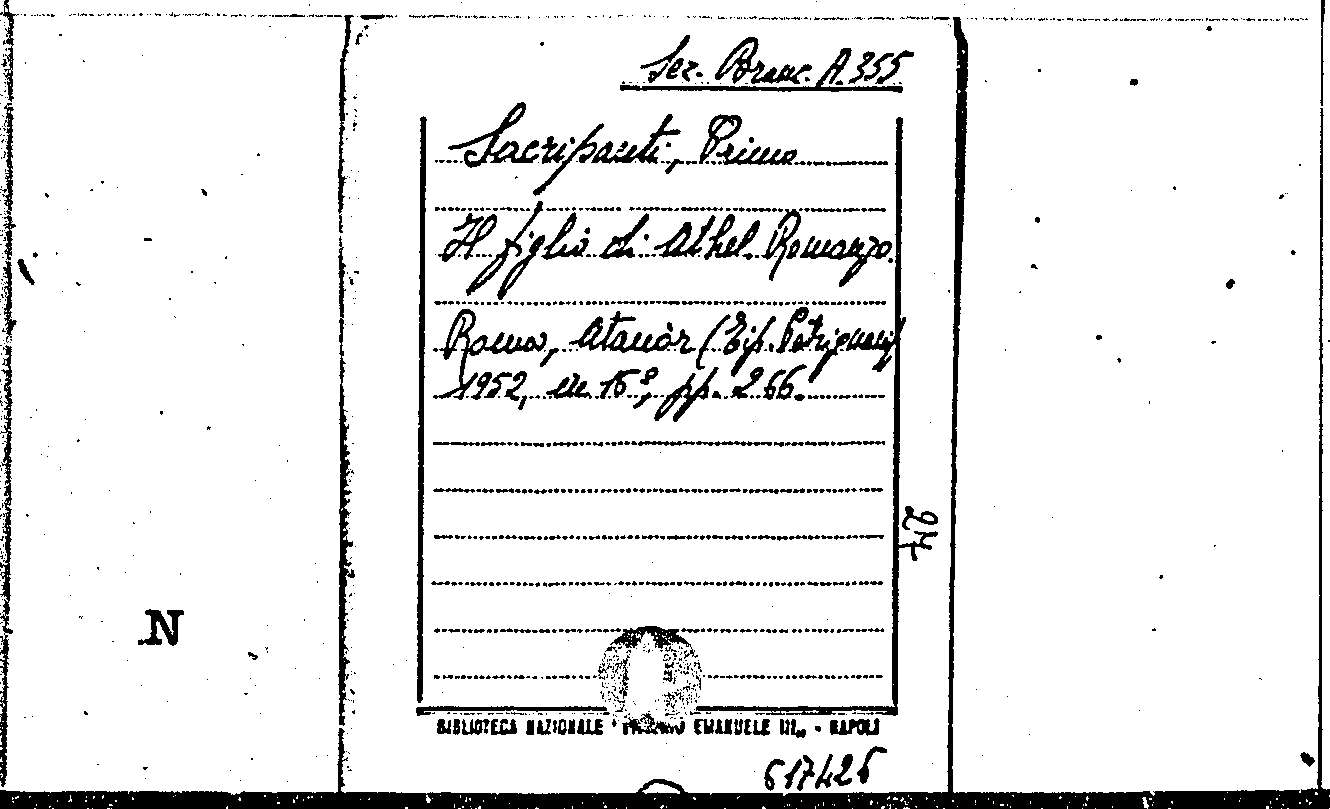 Sez. Branc. A.355
Sacripanti, Primo
Il figlio di Athel. Romanzo.
Roma, Atanòr (Tip. Petrignani)
1952, in 16°, pp. 266.
BIBLIOTECA NAZIONALE "VITTORIO EMANUELE III„ - NAPOLI
617426
N